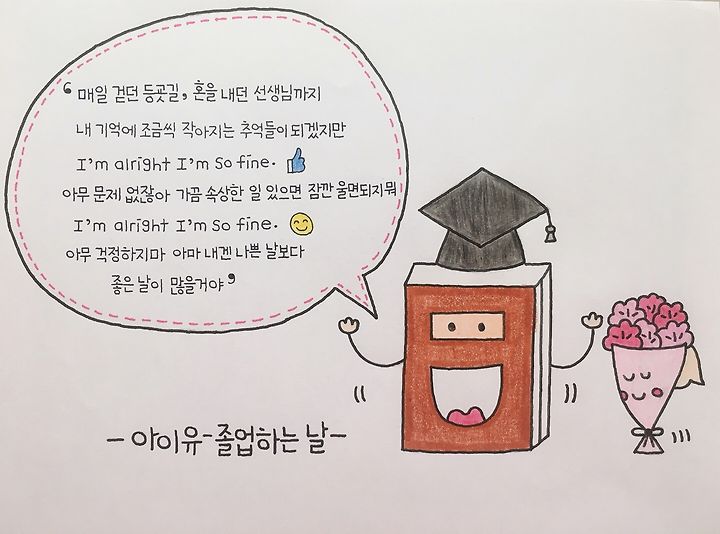 ❛ 매일 걷던 등굣길, 혼을 내던 선생님까지
내 기억에 조금씩 작아지는 추억들이 되겠지만
I'm alright I'm so fine.
아무 문제 없잖아 가끔 속상한 일 있으면 잠깐 울면되지뭐
I'm alright I'm so fine.
아무 걱정하지마 아마 내겐 나쁜 날보다
좋은 날이 많을거야 ❜
- 아이유-졸업하는 날-